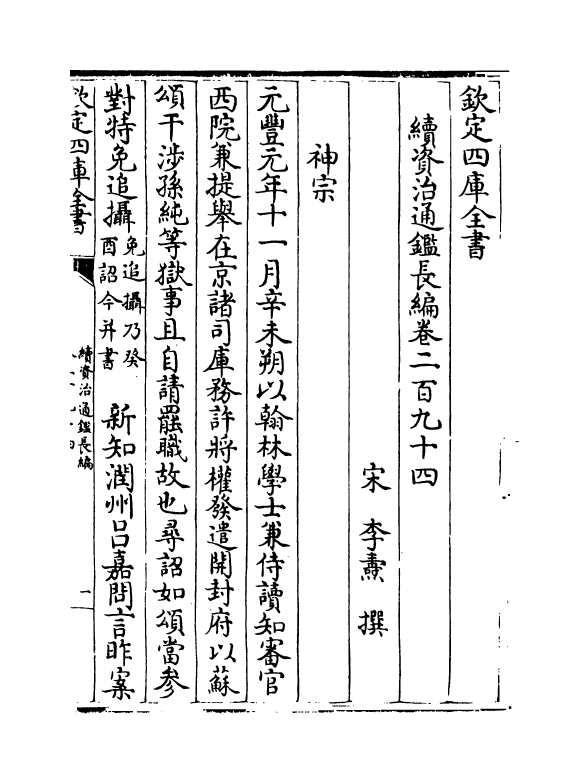 欽定四庫全書
續資治通鑑長編卷二百九十四
宋 李燾 撰
神宗
元豐元年十一月辛未朔以翰林學士兼侍讀知審官
西院兼提舉在京諸司庫務許將權發遣開封府以蘇
頌干涉孫純等獄事且自請罷職故也尋詔如頌當參
對特免追攝免追攝乃癸
酉詔今并書 新知潤州吕嘉問言昨案
欽定四庫全書
續資治通鑑長編
一